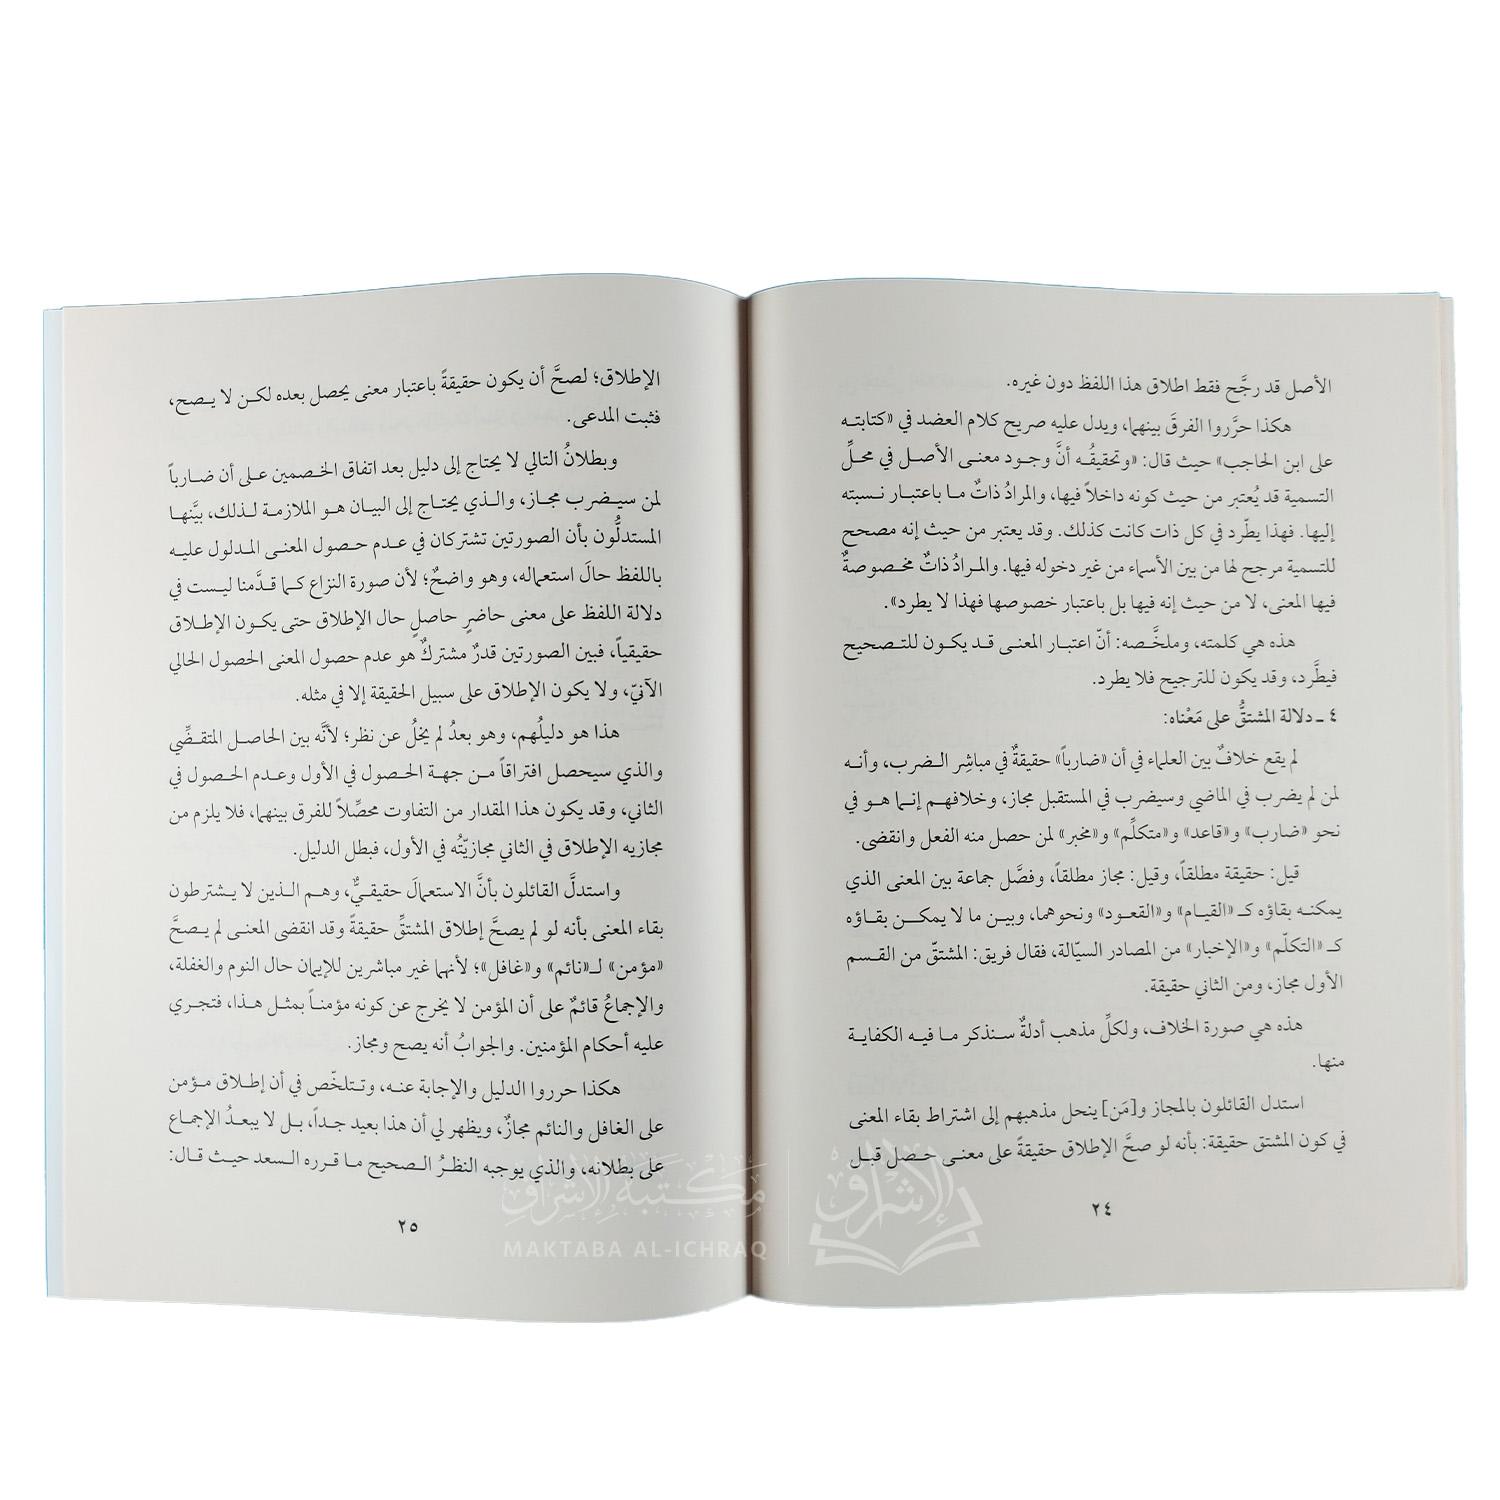 الأصل قد رجَّح فقط اطلاق هذا اللفظ دون غيره.
هكذا حرَّروا الفرقَ بينهما، ويدل عليه صريح كلام العضد في «كتابته
على ابن الحاجب» حيث قال: «وتحقيقُه أنَّ وجود معنى الأصل في محلِّ
التسمية قد يُعتبر من حيث كونه داخلاً فيها، والمرادُ ذاتٌ ما باعتبار نسبته
إليها. فهذا يطّرد في كل ذات كانت كذلك. وقد يعتبر من حيث إنه مصحح
للتسمية مرجح لها من بين الأسماء من غير دخوله فيها. والمرادُ ذاتٌ مخصوصةٌ
فيها المعنى، لا من حيث إنه فيها بل باعتبار خصوصها فهذا لا يطرد».
هذه هي كلمته، وملخَّصه: أنّ اعتبار المعنى قد يكون للتصحيح
فيطَّرد، وقد يكون للترجيح فلا يطرد.
٤ ـ دلالة المشتقُّ على مَعْناه:
لم يقع خلافٌ بين العلماء في أن «ضارباً» حقيقةٌ في مباشِر الضرب، وأنه
لمن لم يضرب في الماضي وسيضرب في المستقبل مجاز، وخلافهم إنما هو في
نحو «ضارب» و«قاعد» و«متكلِّم» و«مخبر» لمن حصل منه الفعل وانقضى.
قيل: حقيقة مطلقاً، وقيل: مجاز مطلقاً، وفصَّل جماعة بين المعنى الذي
يمكنه بقاؤه كـ «القيام» و«القعود» ونحوهما، وبين ما لا يمكن بقاؤه
كـ «التكلّم» و«الإخبار» من المصادر السيّالة، فقال فريق: المشتقّ من القسم
الأول مجاز، ومن الثاني حقيقة.
هذه هي صورة الخلاف، ولكلِّ مذهب أدلةٌ سنذكر ما فيه الكفاية
منها.
استدل القائلون بالمجاز و[مَن] ينحل مذهبهم إلى اشتراط بقاء المعنى
في كون المشتق حقيقة: بأنه لو صحَّ الإطلاق حقيقةً على معنى حصل قبل
٢٤
الإطلاق؛ لصحَّ أن يكون حقيقةً باعتبار معنى يحصل بعده لكن لا يصح،
فثبت المدعى.
وبطلانُ التالي لا يحتاج إلى دليل بعد اتفاق الخصمين على أن ضارباً
لمن سيضرب مجاز، والذي يحتاج إلى البيان هو الملازمة لذلك، بيَّنها
المستدلُّون بأن الصورتين تشتركان في عدم حصول المعنى المدلول عليه
باللفظ حالَ استعماله، وهو واضحٌ؛ لأن صورة النزاع كما قدَّمنا ليست في
دلالة اللفظ على معنى حاضرٍ حاصلٍ حال الإطلاق حتى يكون الإطلاق
حقيقياً، فبين الصورتين قدرٌ مشتركٌ هو عدم حصول المعنى الحصول الحالي
الآنيّ، ولا يكون الإطلاق على سبيل الحقيقة إلا في مثله.
هذا هو دليلُهم، وهو بعدُ لم يخلُ عن نظر؛ لأنَّه بين الحاصل المتقضِّي
والذي سيحصل افتراقاً من جهة الحصول في الأول وعدم الحصول في
الثاني، وقد يكون هذا المقدار من التفاوت محصِّلاً للفرق بينهما، فلا يلزم من
مجازيه الإطلاق في الثاني مجازيّتُه في الأول، فبطل الدليل.
واستدلَّ القائلون بأنَّ الاستعمالَ حقيقيٌّ، وهم الذين لا يشترطون
بقاء المعنى بأنه لو لم يصحَّ إطلاق المشتقِّ حقيقةً وقد انقضى المعنى لم يصحَّ
«مؤمن» لـ«نائم» و«غافل»؛ لأنهما غير مباشرين للإيمان حال النوم والغفلة،
والإجماعُ قائمٌ على أن المؤمن لا يخرج عن كونه مؤمناً بمثل هذا، فتجري
عليه أحكام المؤمنين. والجوابُ أنه يصح ومجاز.
هكذا حرروا الدليل والإجابة عنه، وتتلخّص في أن إطلاق مؤمن
على الغافل والنائم مجازٌ، ويظهر لي أن هذا بعيد جداً، بل لا يبعدُ الإجماع
على بطلانه، والذي يوجبه النظرُ الصحيح ما قرره السعد حيث قال:
٢٥
مكتبة الإشراق
MAKTABA AL-ICHRAQ
الإشراق